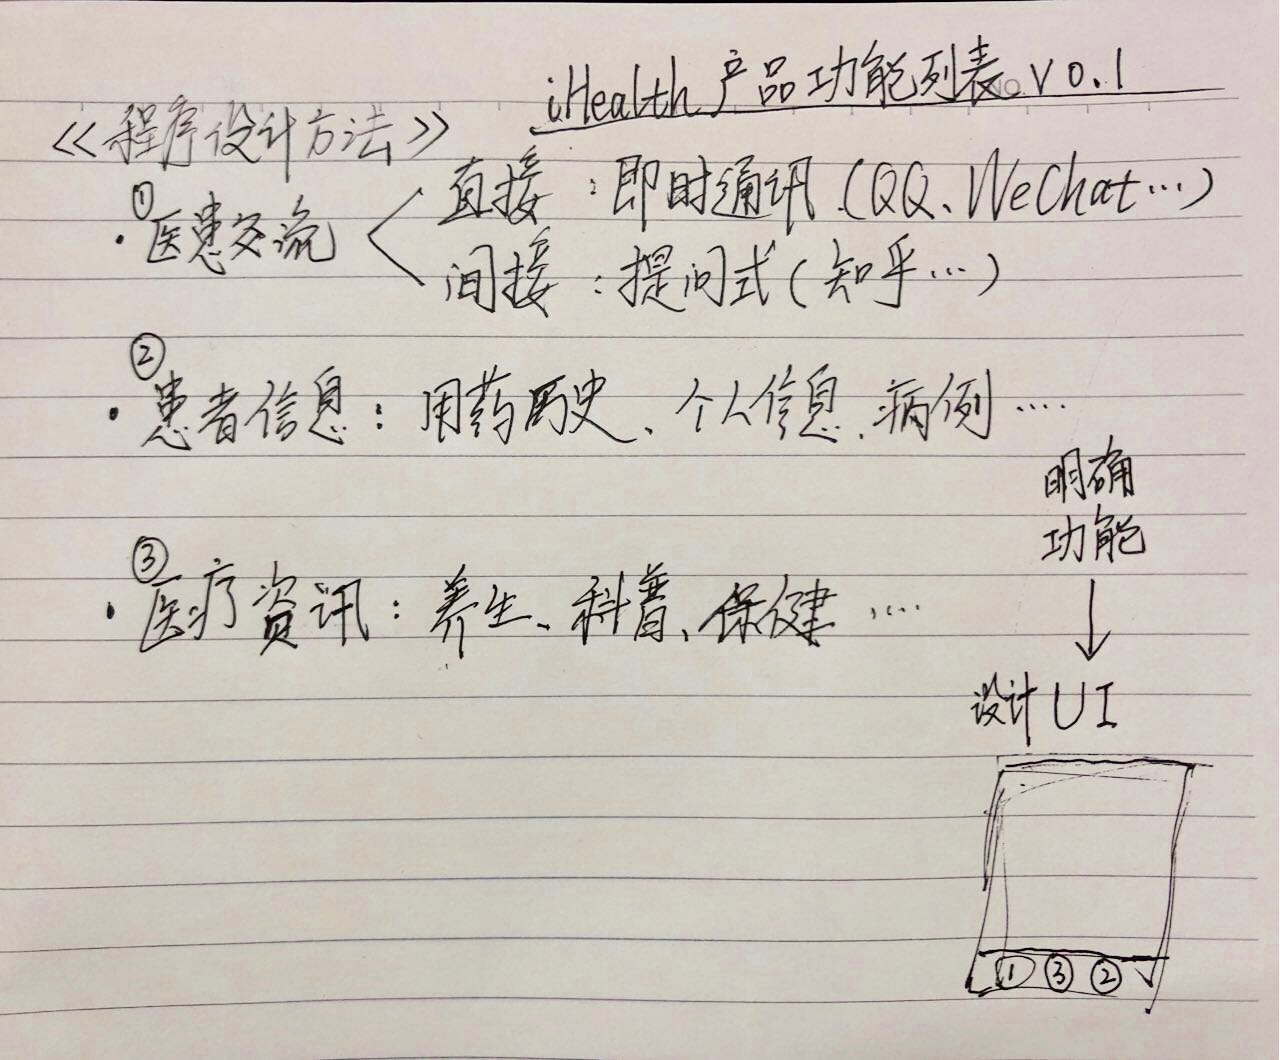 iHealth 产品功能列表 V0.1
《程序设计方法》
①
· 医患交流
直接：即时通讯（QQ、WeChat…）
间接：提问式（知乎…）
②
· 患者信息：用药历史、个人信息、病例….
③
· 医疗资讯：养生、科普、保健….
明确
功能
设计UI
① ③ ②